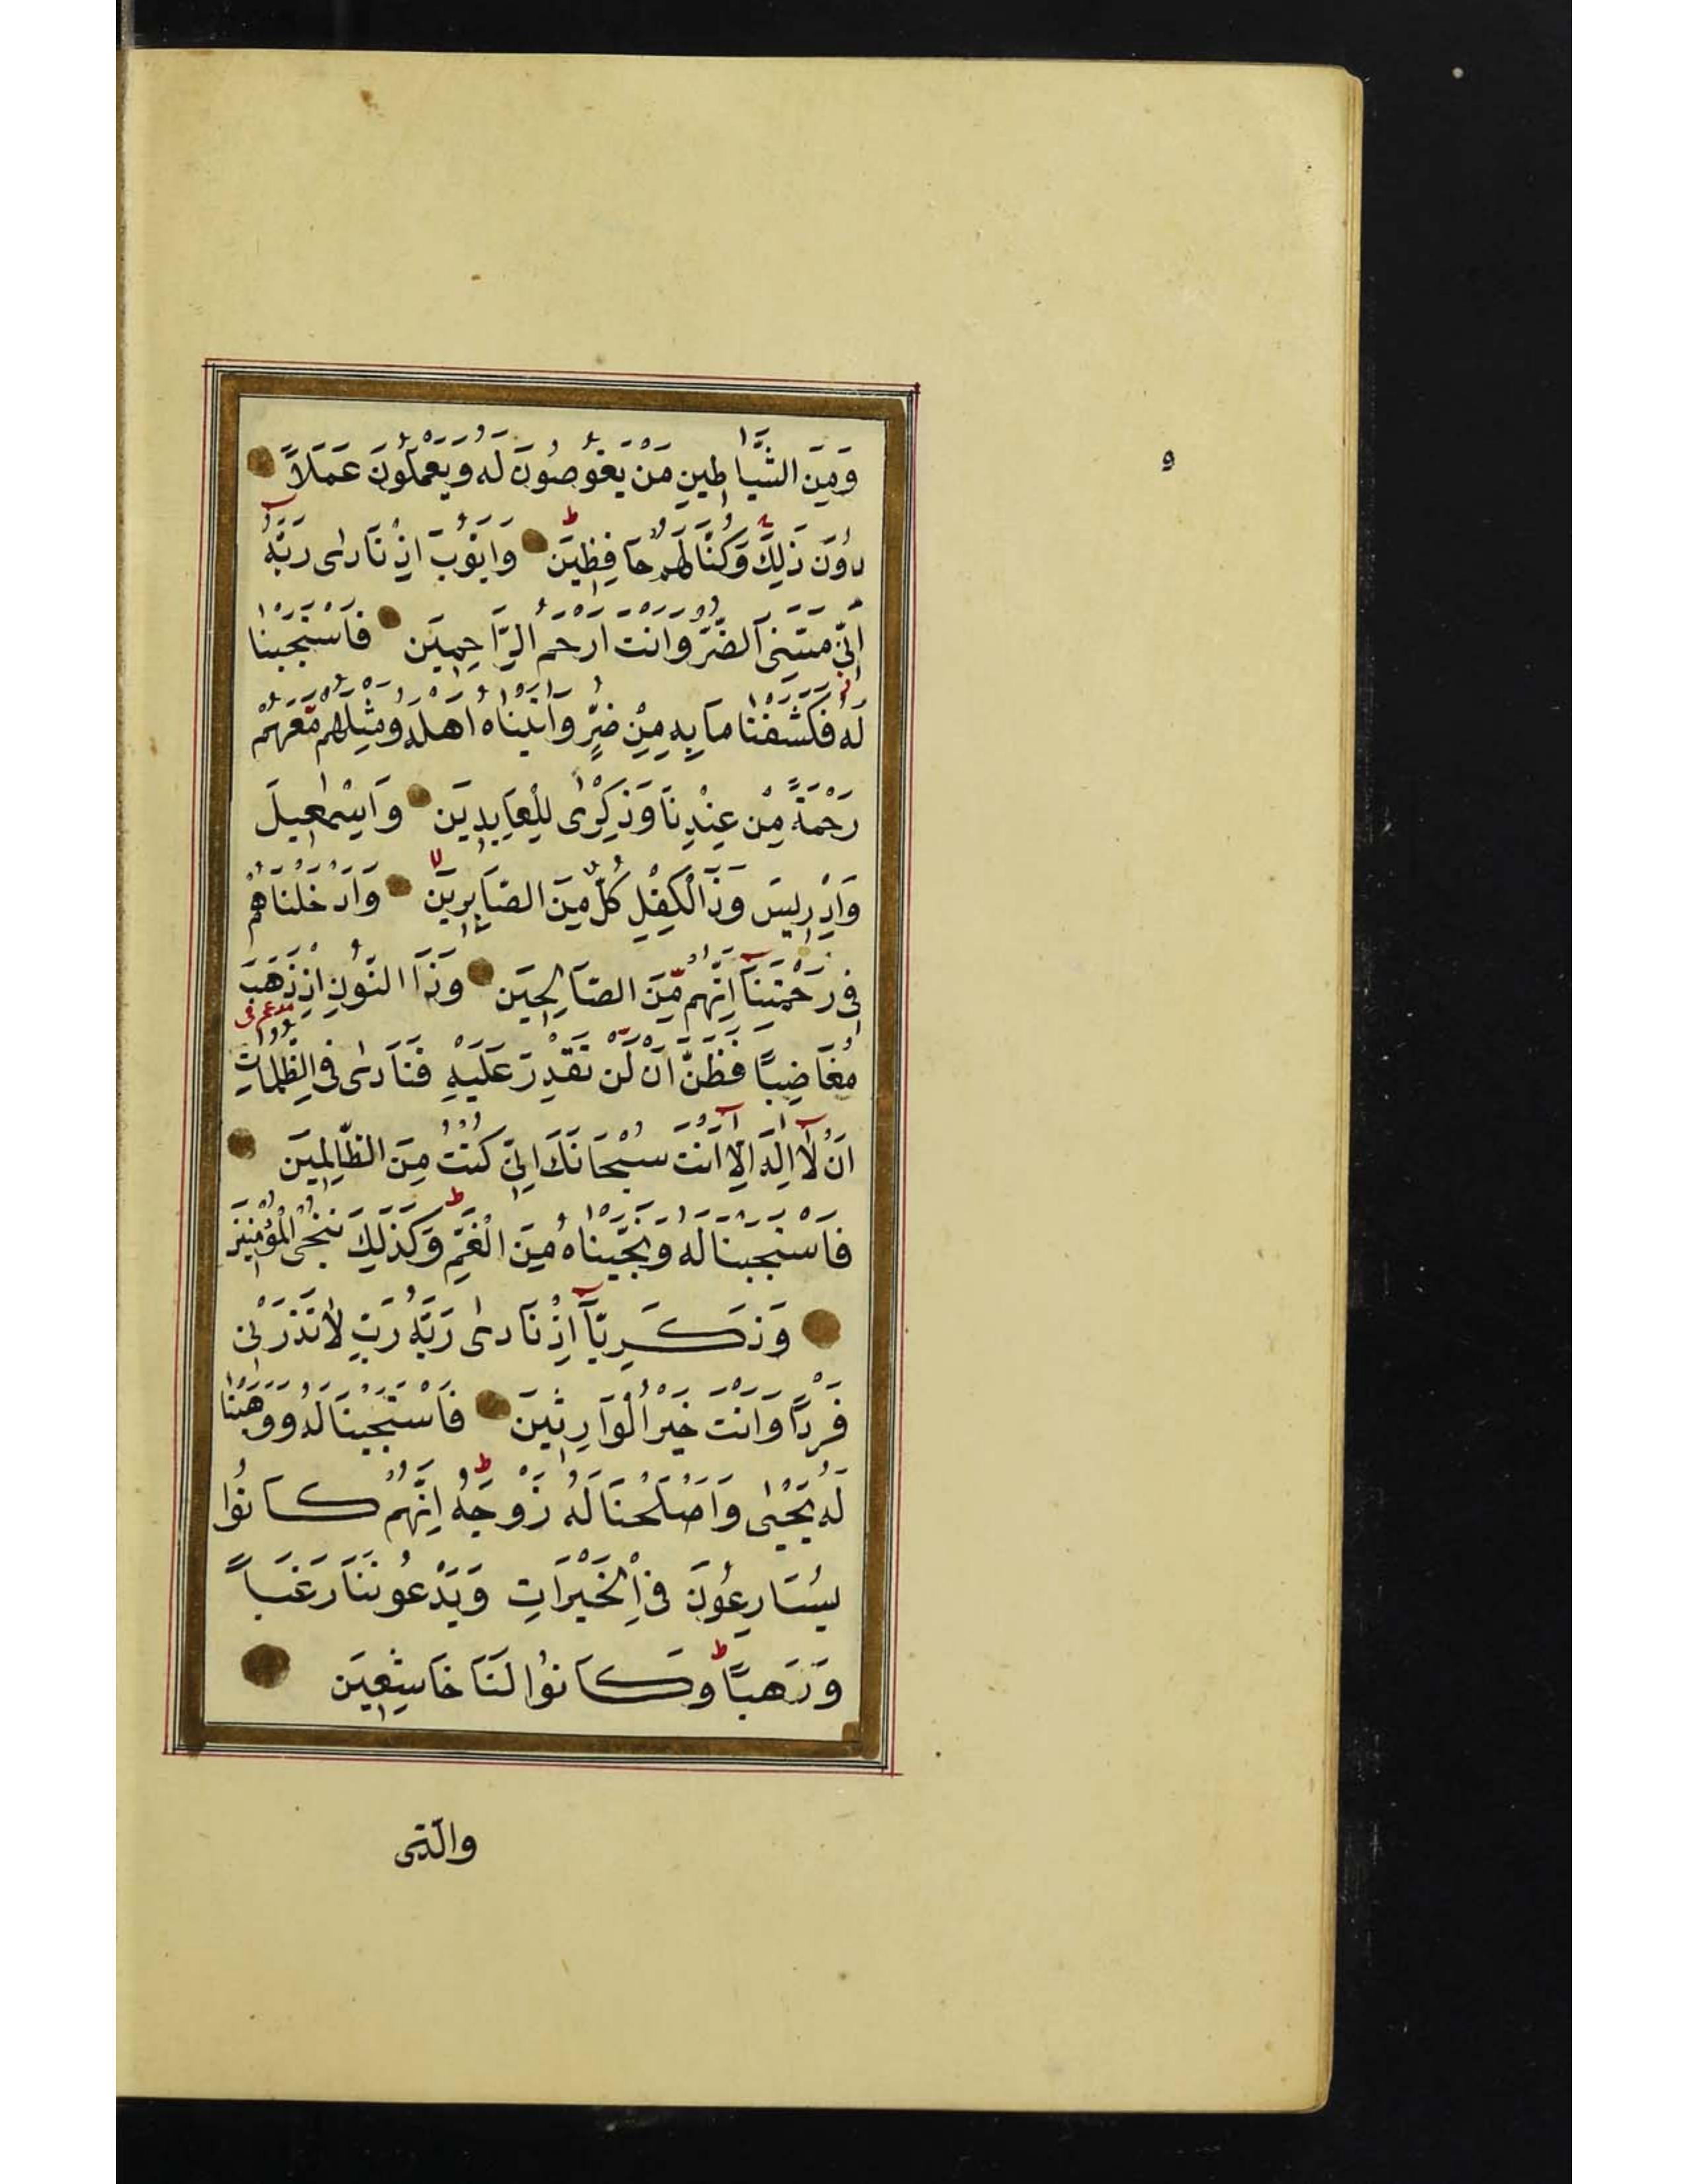 وَمِنَ الشَّيَاطِينِ مَنْ يَغُوصُونَ لَهُ وَيَعْمَلُونَ عَمَلًا
و
دُونَ ذَلِكَ وَكُنَّا لَهُمْ حَافِظِينَ وَاَيُّوبَ اِذْ نَادٰى رَبَّهُ
اَنِّي مَسَّنِيَ الضُّرُّ وَاَنْتَ اَرْحَمُ الرَّاحِمِينَ فَاسْتَجَبْنَا
لَهُ فَكَشَفْنَا مَا بِهِ مِنْ ضُرٍّ وَاٰتَيْنَاهُ اَهْلَهُ وَمِثْلَهُمْ مَعَهُمْ
رَحْمَةً مِنْ عِنْدِنَا وَذِكْرٰى لِلْعَابِدِينَ وَاِسْمٰعِيلَ
وَاِدْرِيسَ وَذَا الْكِفْلِ كُلٌّ مِنَ الصَّابِرِينَ وَاَدْخَلْنَاهُمْ
فِي رَحْمَتِنَآ اِنَّهُمْ مِنَ الصَّالِحِينَ وَذَا النُّونِ اِذْ ذَهَبَ
مُغَاضِبًا فَظَنَّ اَنْ لَنْ نَقْدِرَ عَلَيْهِ فَنَادٰى فِي الظُّلُمَاتِ
اَنْ لَآ اِلٰهَ اِلَّآ اَنْتَ سُبْحَانَكَ اِنِّي كُنْتُ مِنَ الظَّالِمِينَ
فَاسْتَجَبْنَا لَهُ وَنَجَّيْنَاهُ مِنَ الْغَمِّ وَكَذٰلِكَ نُنْجِي الْمُؤْمِنِينَ
وَزَكَرِيَّآ اِذْ نَادٰى رَبَّهُ رَبِّ لَا تَذَرْنِي
فَرْدًا وَاَنْتَ خَيْرُ الْوَارِثِينَ فَاسْتَجَبْنَا لَهُ وَوَهَبْنَا
لَهُ يَحْيٰى وَاَصْلَحْنَا لَهُ زَوْجَهُ اِنَّهُمْ كَانُوا
يُسَارِعُونَ فِي الْخَيْرَاتِ وَيَدْعُونَنَا رَغَبًا
وَرَهَبًا وَكَانُوا لَنَا خَاشِعِينَ
والّتى